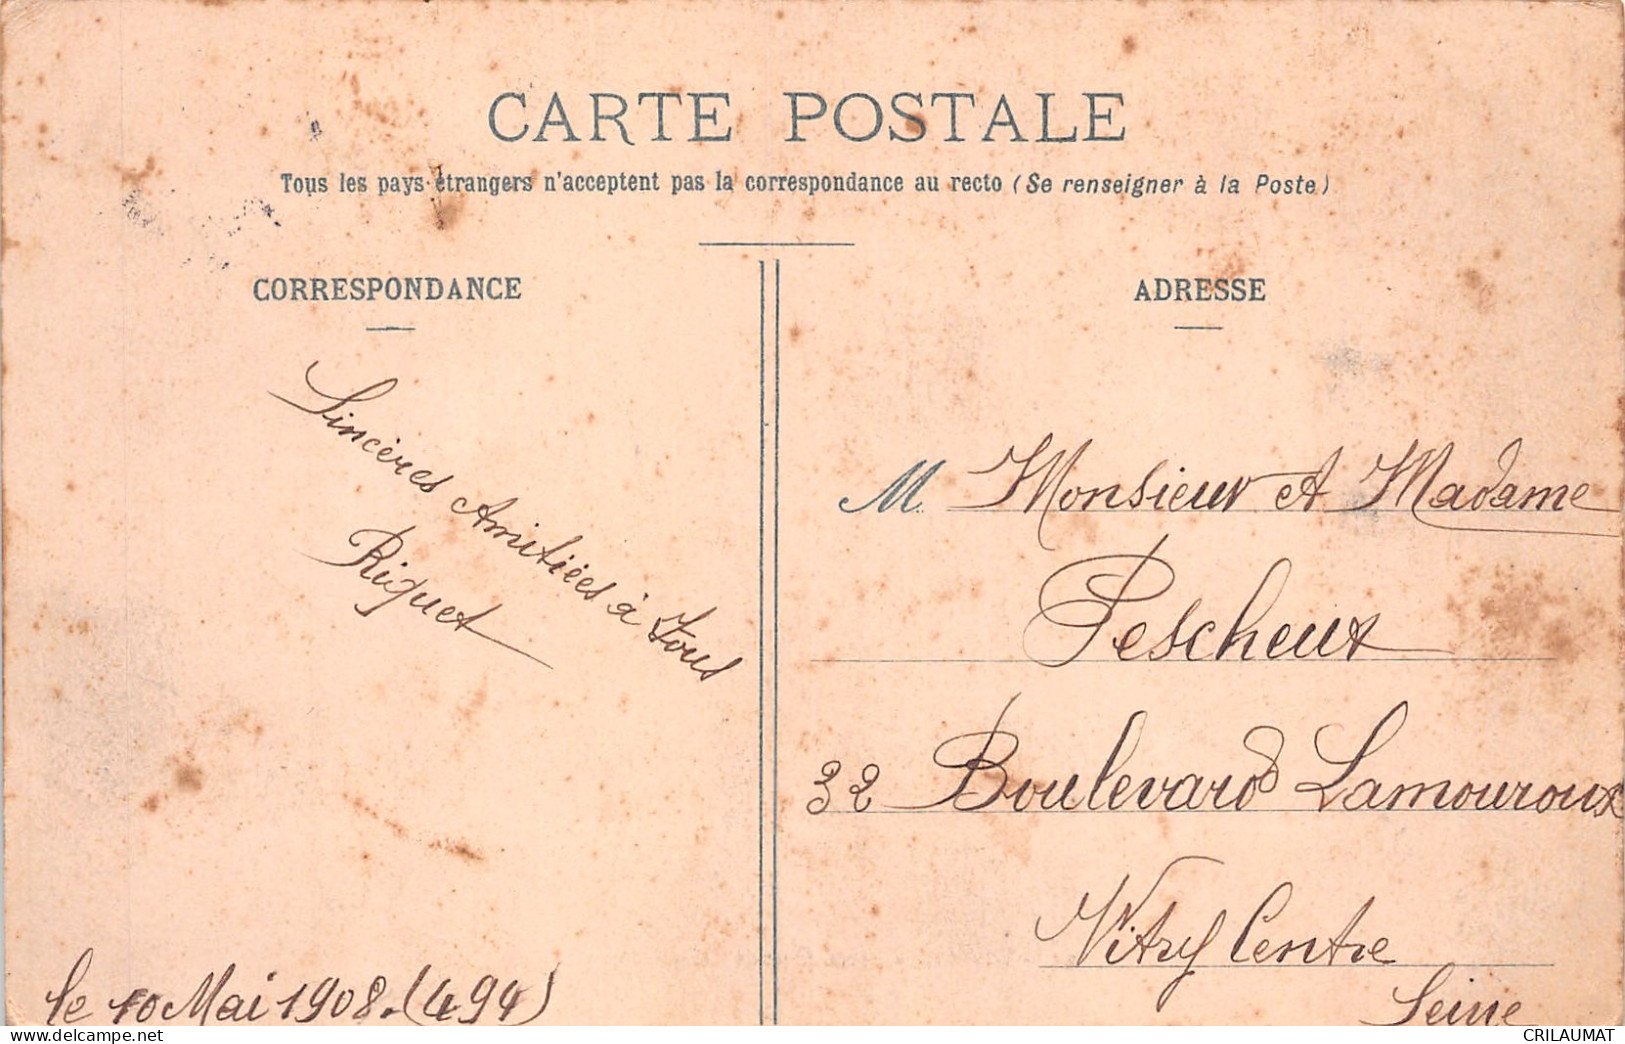 CARTE POSTALE
Tous les pays étrangers n'acceptent pas la correspondance au recto (Se renseigner à la Poste)
CORRESPONDANCE
Sincères Amitiées à tous
Riquet
le 10 Mai 1908. (494)
ADRESSE
M Monsieur et Madame
Pescheux
32 Boulevard Lamouroux
Vitry Centre
Seine
CRILAUMAT